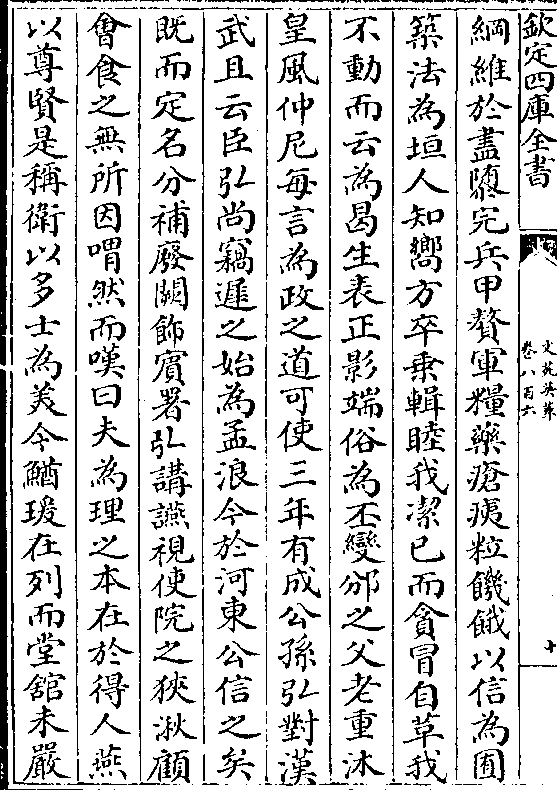 欽定四庫全書
文苑英華
卷八百六
十
綱維於盡隳完兵甲贅軍糧藥瘡痍粒饑餓以信為圃
築法為垣人知嚮方卒乗輯睦我潔已而貪冒自革我
不動而云為曷生表正影端俗為丕變邠之父老重沐
皇風仲尼每言為政之道可使三年有成公孫弘對漢
武且云臣弘尚竊遲之始為孟浪今於河東公信之矣
既而定名分補廢闕飾賓署弘講讌視使院之狹湫顧
㑹食之無所因喟然而嘆曰夫為理之本在於得人燕
以尊賢是稱衛以多士為美今鰌瑗在列而堂舘未嚴